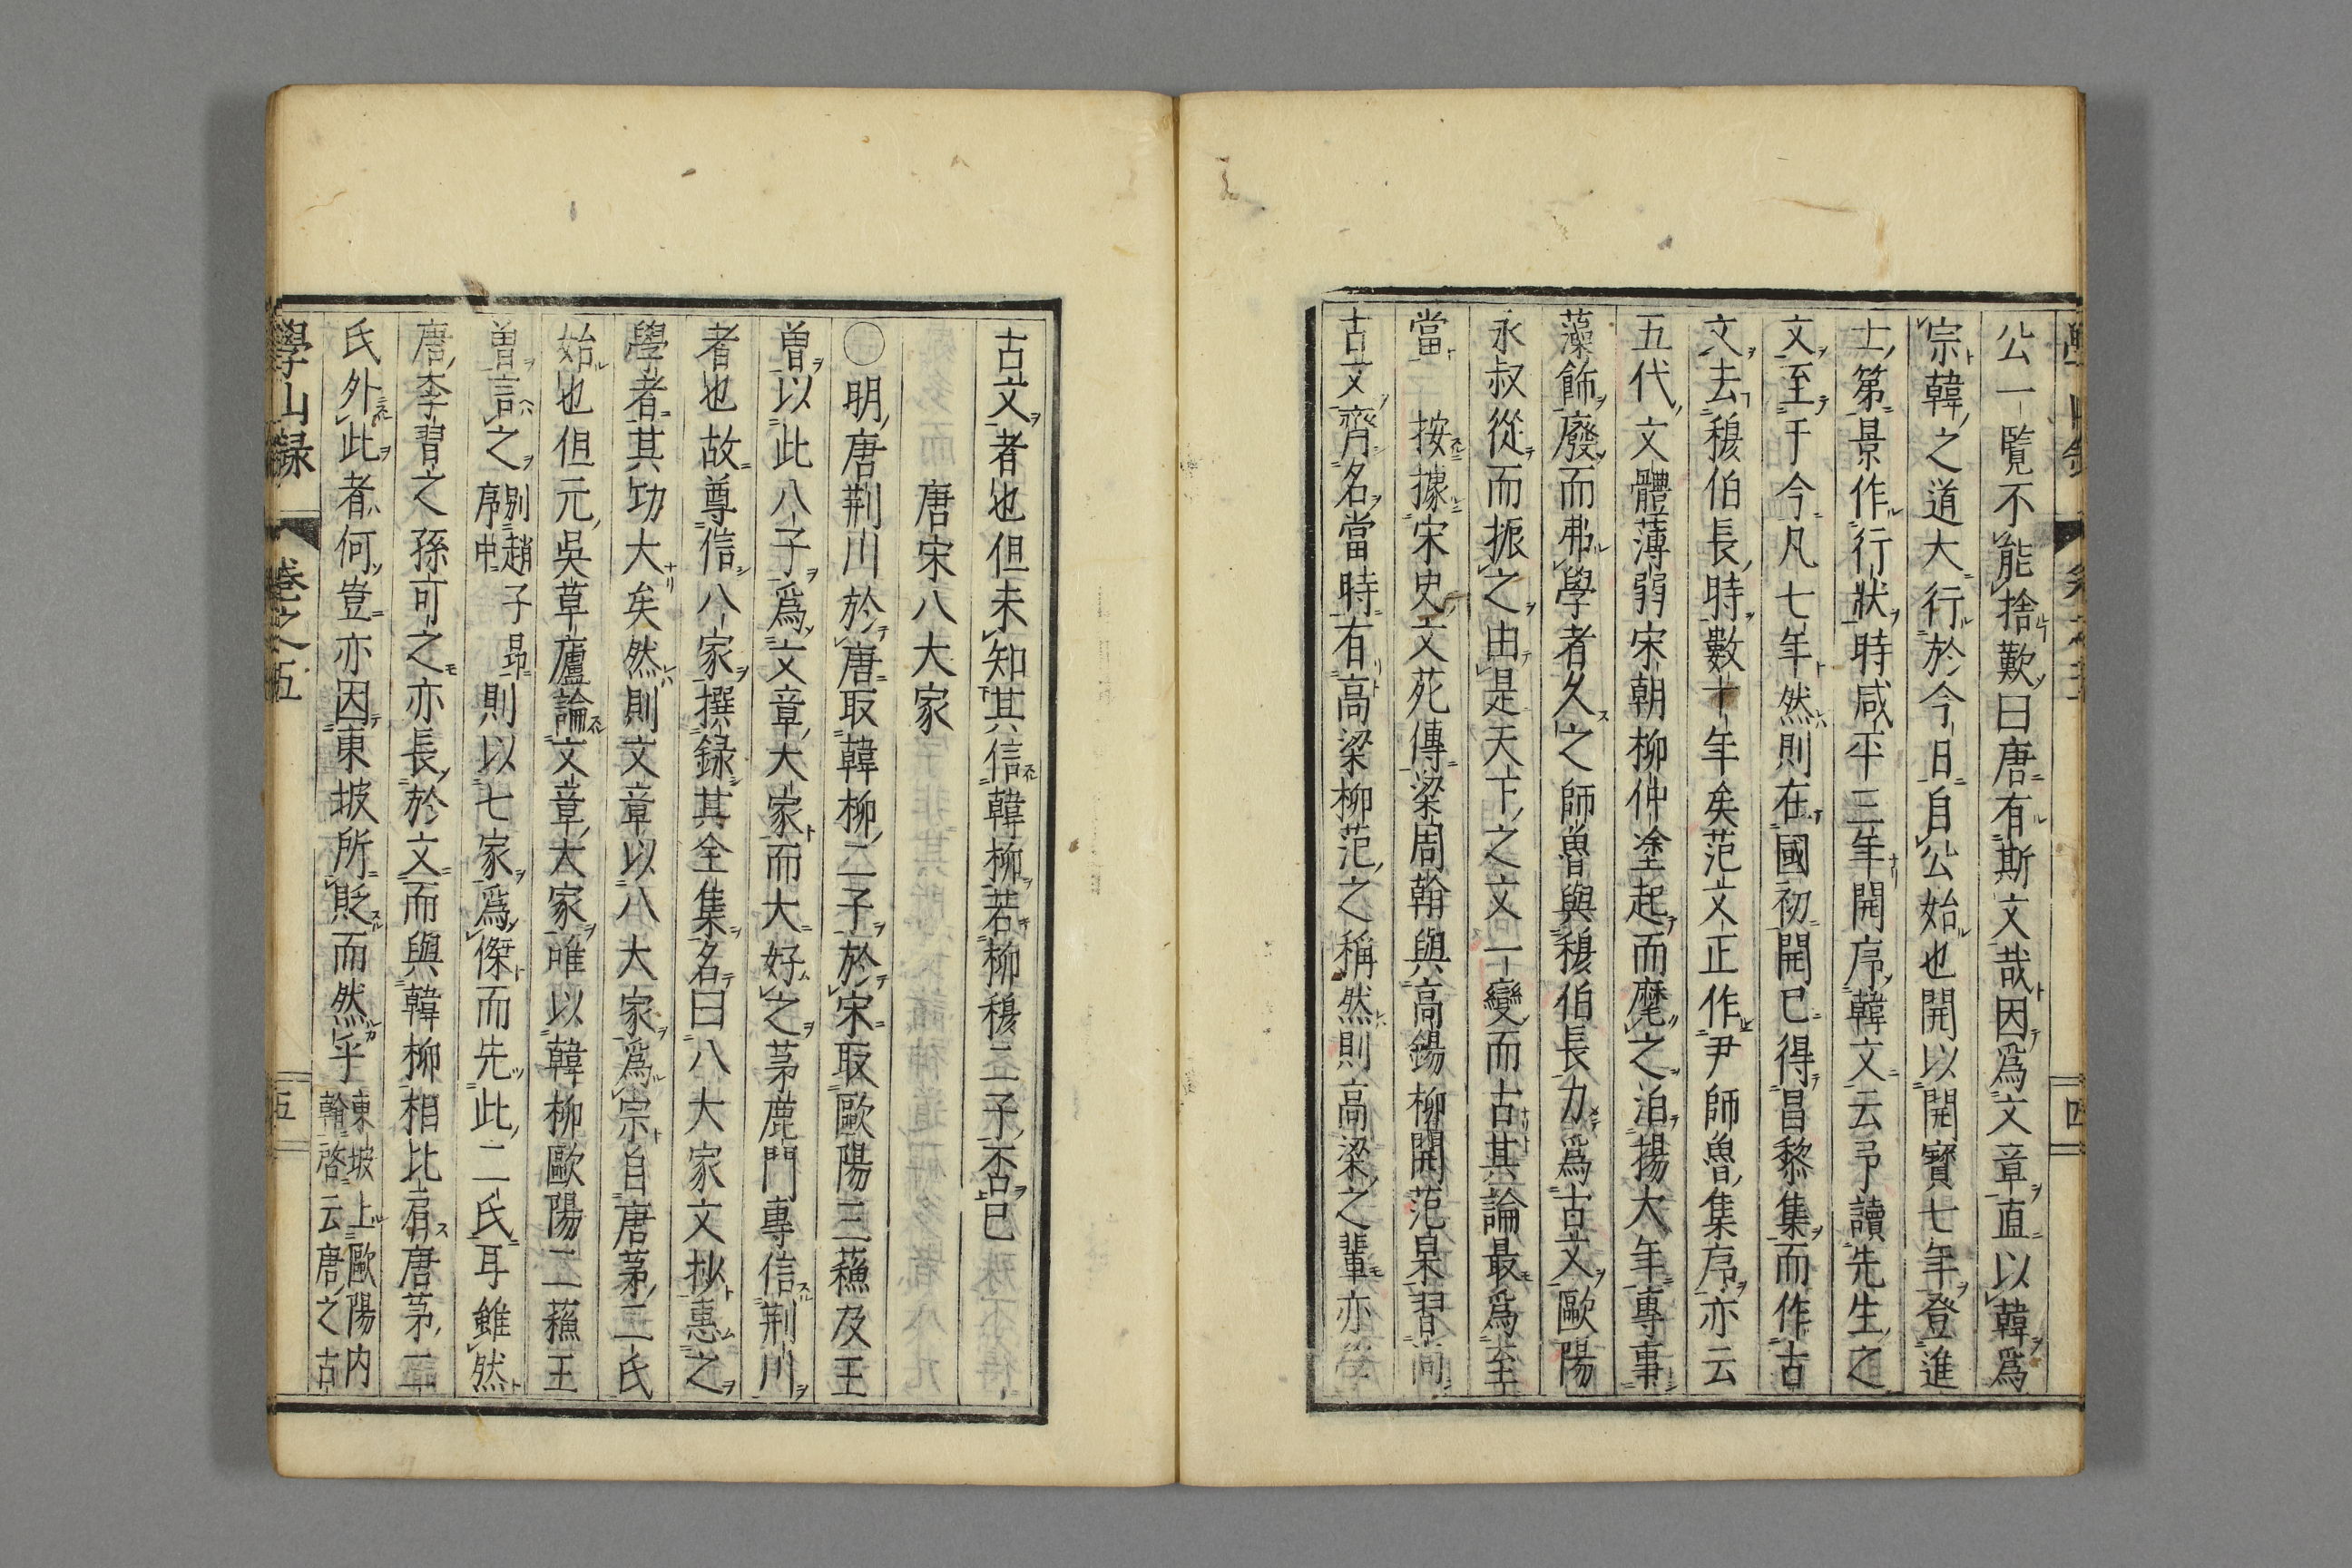 公一覧不能捨歎曰唐有斯文哉因爲文章直以韓爲
宗韓之道大行於今日自公始也開以開寳七年登進
士第景作行狀時咸平三年開序韓文云予讀先生之
文至于今凡七年然則在國初開已得昌黎集而作古
文去穆伯長時數十年矣范文正作尹師魯集序亦云
五代文體薄弱宋朝柳仲塗起而麾之洎楊大年專事
藻飾廢而弗學者久之師魯與穆伯長力爲古文歐陽
永叔從而振之由是天下之文一變而古其論最爲至
當　按據宋史文苑傳梁周翰與高錫柳開范杲習尚
古文齊名當時有高梁柳范之稱然則高梁之輩亦
古文者也但未知其信韓柳若柳穆二子否已
唐宋八大家
○明唐荊川於唐取韓柳二子於宋取歐陽三蘓及王
曽以此八子爲文章大家而大好之茅鹿門專信荊川
者也故尊信八家撰録其全集名曰八大家文抄惠之
學者其功大矣然則文章以八大家爲宗自唐茅二氏
始也但元吳草廬論文章大家唯以韓柳歐陽二蘓王
曽言之別趙子昻序中則以七家爲傑而先此二氏耳雖然
唐李習之孫可之亦長於文而與韓柳相比肩唐茅二
氏外此者何豈亦因東坡所貶而然乎東坡上歐陽内翰啓云唐之古
學山録　卷之五　五